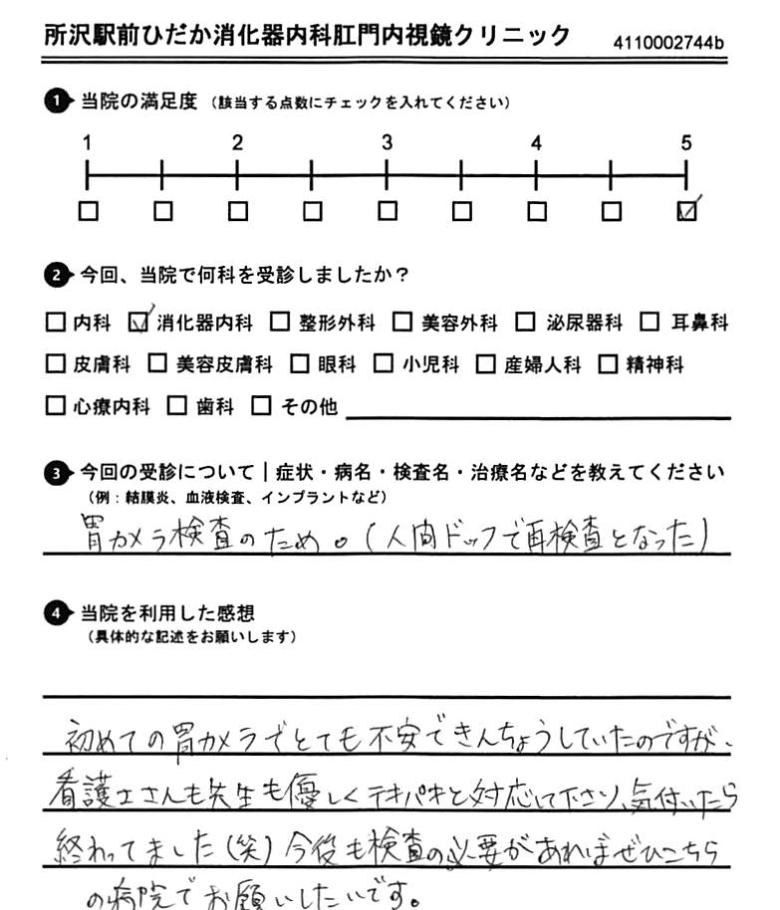 所沢駅前ひだか消化器内科肛門内視鏡クリニック 4110002744b
1 当院の満足度 （該当する点数にチェックを入れてください）
1 2 3 4 5
2 今回、当院で何科を受診しましたか？
内科 消化器内科 整形外科 美容外科 泌尿器科 耳鼻科
皮膚科 美容皮膚科 眼科 小児科 産婦人科 精神科
心療内科 歯科 その他
3 今回の受診について｜症状・病名・検査名・治療名などを教えてください
（例：結膜炎、血液検査、インプラントなど）
胃カメラ検査のため。（人間ドックで再検査となった）
4 当院を利用した感想
（具体的な記述をお願いします）
初めての胃カメラでとても不安できんちょうしていたのですが、
看護士さんも先生も優しくテキパキと対応して下さり、気付いたら
終わってました（笑）今後も検査の必要があればぜひこちら
の病院でお願いしたいです。